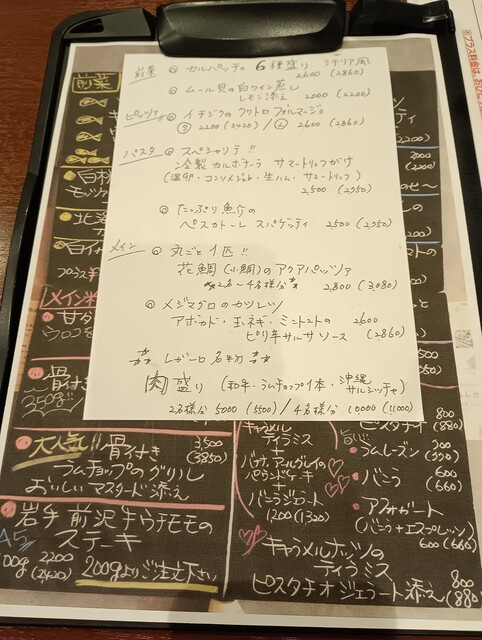 前菜 ◎ カルパッチョ 6種盛り シチリア風
2600 (2860)
◎ ムール貝の白ワイン蒸し
レモン添え 2000 (2200)
ピッツァ ◎ イチジクのクワトロフォルマージョ
Ⓢ 2200 (2420) / Ⓛ 2600 (2860)
パスタ ◎ スペシャリテ!!
冷製 カルボナーラ サマートリュフがけ
(温卵・コンソメジュレ・生ハム・サマートリュフ)
2,500 (2,750)
◎ たっぷり魚介の
ペスカトーレ スパゲッティ 2500 (2,750)
メイン ◎ 丸ごと1匹!!
花鯛 (小鯛) のアクアパッツァ
2名〜4名様分 2,800 (3,080)
◎ メジマグロのカツレツ
アボカド・玉ネギ・ミントトマトの 2600
ピリ辛サルサソース (2860)
名物
肉盛り (和牛・ラムチョップ1本・沖縄
サルシッチャ)
2名様分 5000 (5500) / 4名様分 10000 (11000)
前菜
白桃
モッツァ
北海
白イ
プラス
メイン料
甘ダ
ウロコ
骨付き
250g
大人気!! 骨付き 3500
(3850)
ラムチョップのグリル
おいしいマスタード添え
岩手前沢牛ウチモモの
A5 ステーキ
100g 2200
(2420) 200gよりご注文下さい
キャラメル
ティラミス
+
バナナ、アールグレイの
パウンドケーキ
+
バニラジェラート
1200 (1320)
キャラメルナッツの
ティラミス
ピスタチオジェラート添え 800
(880)
ピスタチオ 800
(880)
ラムレーズン 700
(770)
バニラ 600
(660)
アフォガート
(バニラ+エスプレッソ)
600 (660)
※プラス料金は、お